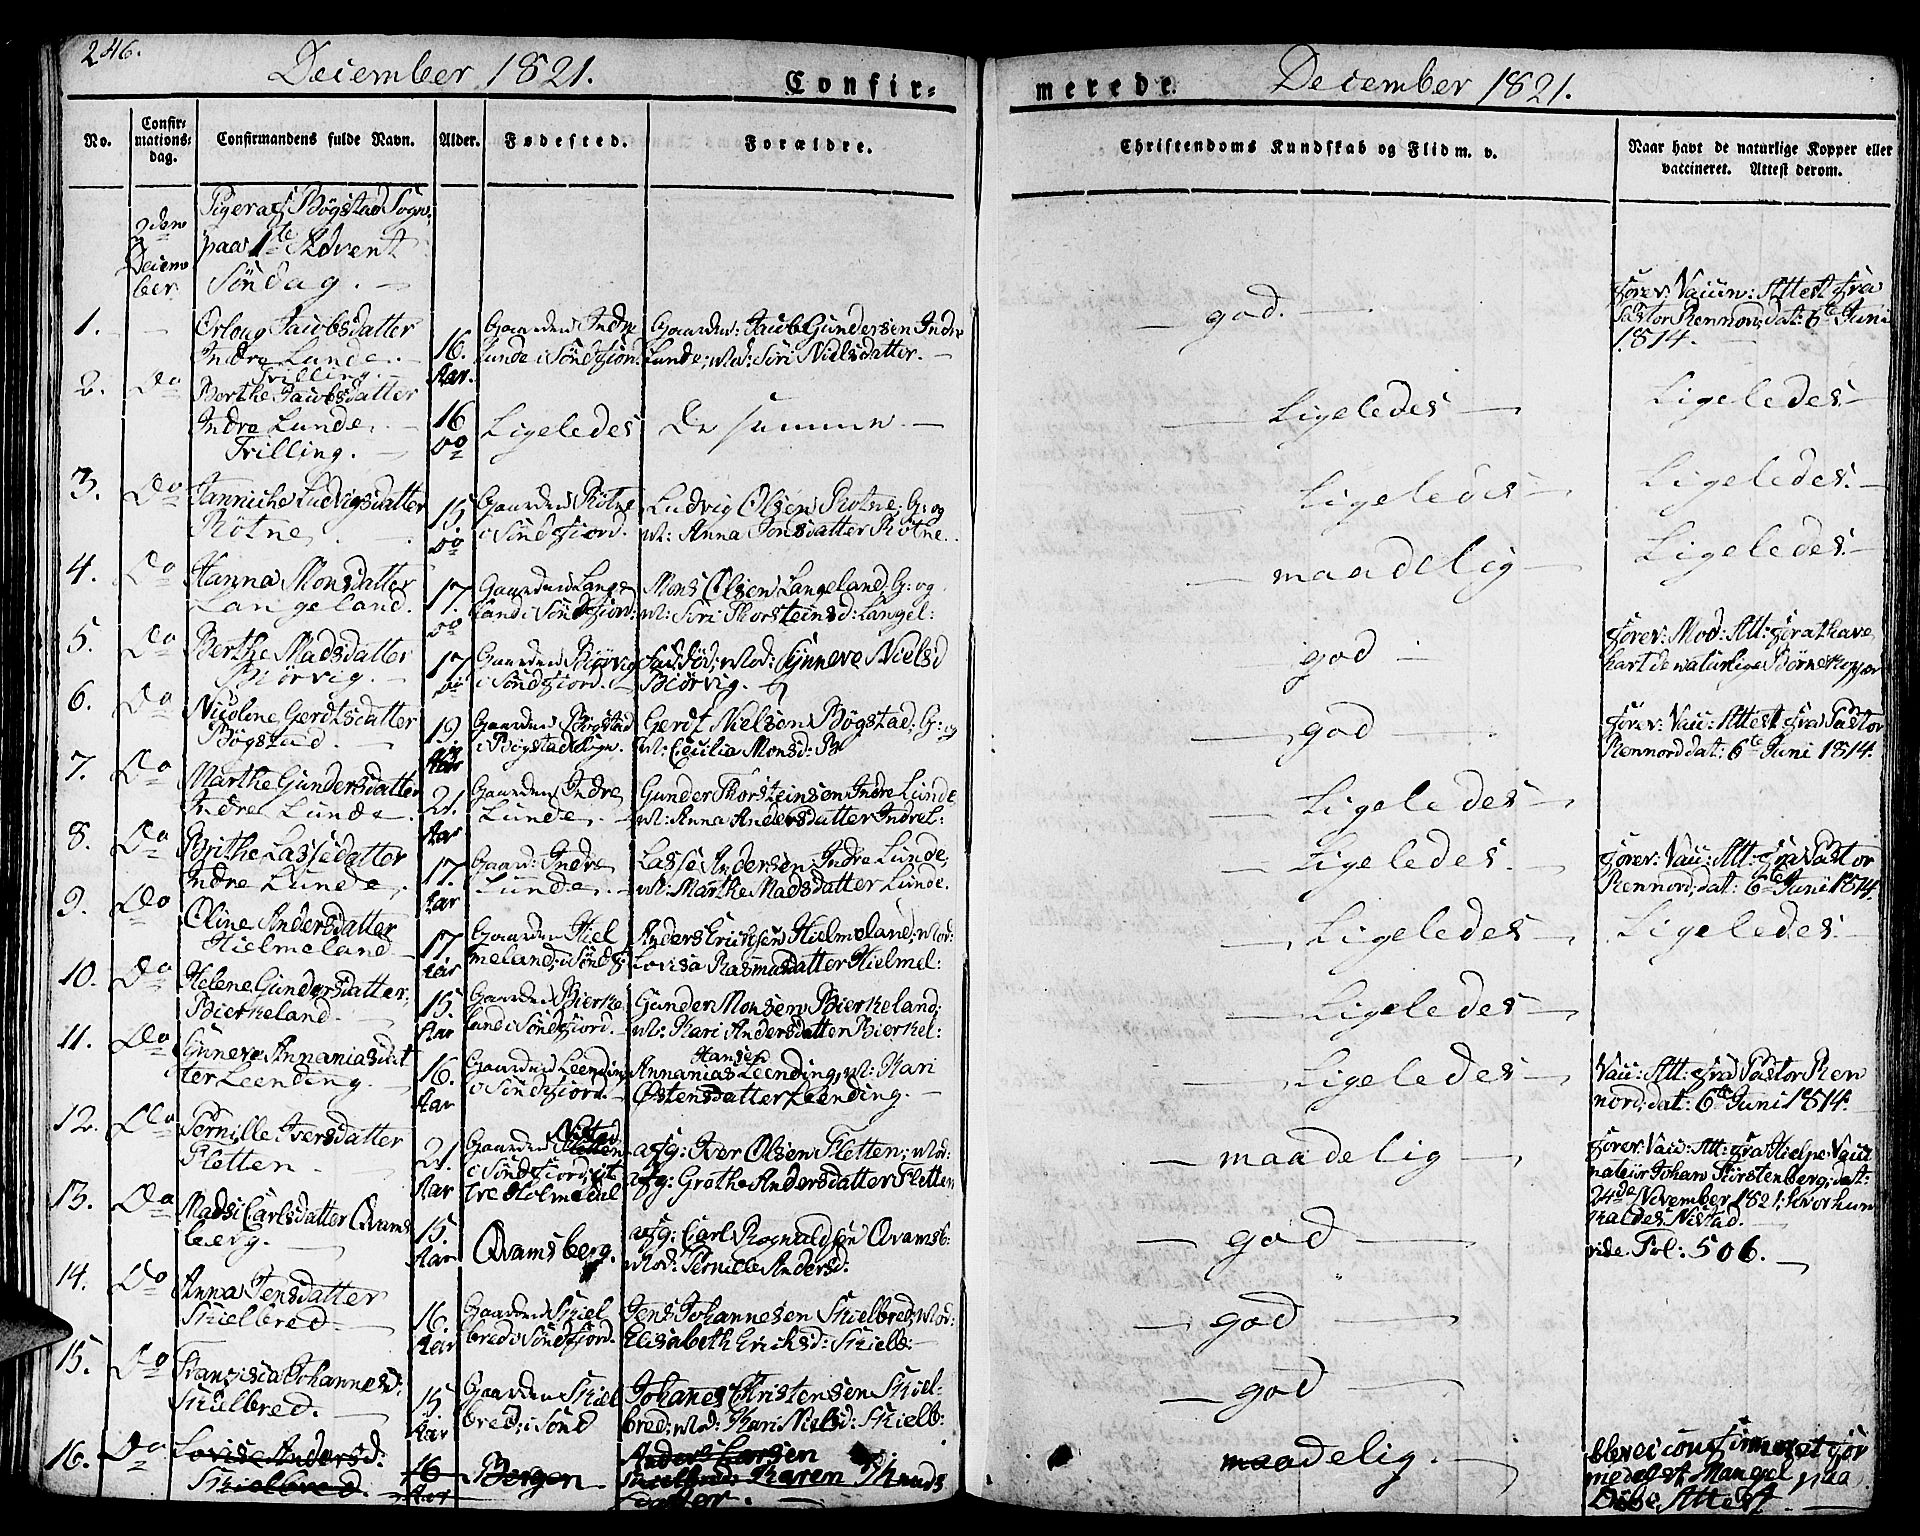 246.
December 1821.
Confir-
merede.
December 1821.
No.
Confir-
mations-
dag.
Confirmandens fulde Navn.
Alder.
Fødested.
Forældre.
Christendoms Kundskab og Flid m. v.
Naar havt de naturlige Kopper eller
vaccineret. Attest derom.
2den
Decem
ber
Piger af Bögstad Sogn,
paa 1te Advent
Söndag.
1.
Jacobsdatter
Indre Lunde.
Trilling.
16.
Aar.
Gaarden Indre
Lunde i Söndfiord.
Gaarden: Jacob Gundersen Indre
Lunde; Mod: Siri Nielsdatter.
god.
forev: Vaccin: Attest fra
Pastor Rennord; dat: 6te Juni
1814.
2.
Do
Berthe Jacobsdatter
Indre Lunde,
Trilling.
16
Do
Ligeledes
De samme.
Ligeledes
Ligeledes.
3.
Do
Janniche Ludvigsdatter
Rötne
15.
Do
Gaarden Rötne
i Söndfiord.
Ludvig Olsen Rötne; G: og
M: Anna Jonsdatter Rötne.
Ligeledes
Ligeledes.
4.
Do
Hanna Monsdatter
Langeland.
17.
Do
Gaarden Lange
land i Söndfiord:
Mons Olsen Langeland; G: og
M: Siri Thorsteinsd: Langel:
maadelig
Ligeledes.
5.
Do
Berthe Madsdatter
Biörvig.
17
Do
Gaarden Biörvig
i Söndfiord.
Fad: död; Mod: Synneve Nielsd
Biörvig.
god
forev: Mod: Att: for at have
havt de naturlige Börnekopper
6.
Do
Nicoline Gerdtsdatter
Bögstad.
19.
Aar
Gaarden Bögstad
i Bögstad Sogn.
Gerdt Nielsen Bögstad; G: og
M: Cecilia Monsd: B
god
forev: Vacc: Attest fra Pastor
Rennord dat: 6te Juni 1814.
7.
Do
Marthe Gundersdatter
Indre Lunde.
21.
Aar
Gaarden Indre
Lunde.
Gunder Thorsteinsen Indre Lunde
M: Anna Andersdatter Indre L:
Ligeledes
8.
Do
Brithe Lassedatter
Indre Lunde,
17.
Aar
Gaard: Indre
Lunde.
Lasse Andersen Indre Lunde,
M: Marthe Madsdatter Lunde.
Ligeledes.
forev: Vacc: Att: fra Pastor
Rennord; dat: 6te Juni 1814.
9.
Do
Oline Andersdatter
Hielmeland
17
Aar
Gaarden Hiel
meland, i Söndf:
Anders Erichsen Hielmeland; Mod:
Lovisa Rasmusdatter Hielmel:
Ligeledes
Ligeledes.
10.
Do
Helene Gundersdatter,
Bierkeland.
15.
Aar
Gaarden Bierke
land i Söndfiord.
Gunder Monsen Bierkeland;
M: Kari Andersdatter Bierkel:
Ligeledes
11.
Do
Synneve Annaniasdat
ter Leending.
16.
Aar
Gaarden Leending
i Söndfiord.
Annanias Hansen Leending, M: Kari
Östensdatter Leending.
Ligeledes
Vacc: Att: fra Pastor Ren
nord; dat: 6te Juni 1814.
12.
Do
Pernille Iversdatter
Fletten
21.
Aar
Gaarden Nistad
Fletten
i Söndfiord, yt
tre Holmedal
afg: Iver Olsen Fletten; Mod:
afg: Grethe Andersdatter Fletten
maadelig
forev: Vacc: Att: fra Hielpe Vacci
nateur Johan Fürstenberg; dat:
24de November 1821; hvor hun
kaldes Nistad.
vide. Pol: 506.
13.
Do
Madsi Carlsdatter Qvams
berg.
15.
Aar
Qvamsberg.
afg: Carl Rognaldsen Qvamsb:
Mod: Pernille Andersd:
god
14.
Do
Anna Jensdatter
Skielbred
16.
Aar
Gaarden Skiel
bred i Söndfiord.
Jens Johannesen Skielbred; Mod:
Elisabeth Eriksd: Skielb:
god
15.
Do
Johannesd:
Skielbred.
15
Aar
Gaarden Skiel
bred; i Sönd
Johanes Christensen Skiel-
bred; Mod: Kari Nielsd: Skielb:
god
16.
Do
Lovise Andersd:
Skielbred.
16
Aar
Bergen
Anders Larsen
Skielbred Karen Knuds
datter.
maadelig.
blev ei confirmeret for
medelst Mangel paa
Döbe Attest.